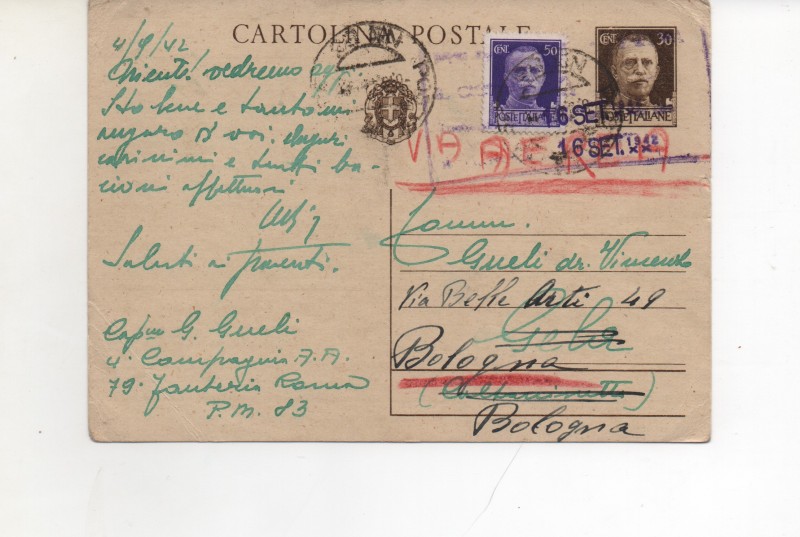 CARTOLINA POSTALE
CENT. 50
POSTE ITALIANE
CENT. 30
POSTE ITALIANE
16 SET. 1942
16 SET. 1942
VIA AEREA
4/9/42
vedremo
Sto bene e tanto mi
auguro di voi. Auguri
carissimi e tutti ba-
cioni affettuosi
Saluti ai parenti.
Cap.no G. Gueli
4. Compagnia A.A.
79. Fanteria Roma
P.M. 83
Gueli dr. Vincenzo
Via Belle Arti 49
Gela
Bologna
(Caltanissetta)
Bologna